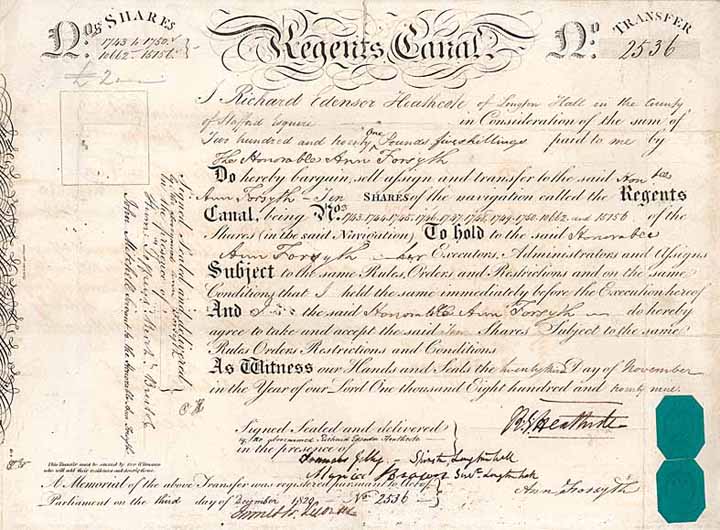 Nos. SHARES
1743 to 1750 &
10662 - 15156
£ 2
Regents Canal.
No. TRANSFER
2536
I Richard Edensor Heathcote of Longton Hall in the County
of Stafford Esquire in Consideration of the sum of
Two hundred and twenty one Pounds five shillings paid to me by
The Honorable Ann Forsyth
Do hereby bargain, sell assign and transfer to the said Honble
Ann Forsyth - Ten SHARES of the navigation called the Regents
Canal, being Nos. 1743. 1744. 1745. 1746. 1747. 1748. 1749. 1750. 10662. and 15156 of the
Shares (in the said Navigation) To hold to the said Honorable
Ann Forsyth - her Executors, Administrators and Assigns
Subject to the same Rules, Orders and Restrictions and on the same
Conditions that I held the same immediately before the Execution hereof
And I the said Honorable Ann Forsyth do hereby
agree to take and accept the said Ten Shares Subject to the same
Rules Orders Restrictions and Conditions
As Witness our Hands and Seals the Day of November
in the Year of our Lord One thousand Eight hundred and twenty nine.
Signed Sealed and delivered
by the abovenamed Richard Edensor Heathcote
in the presence of
Longton hall
Longton hall
R E Heathcote
Ann Forsyth
Signed Sealed and delivered
in the presence of
John Mitchell Servant to the Honorable Ann Forsyth
This Transfer must be executed by two Witnesses
who will add their residences and descriptions.
A Memorial of the above Transfer was registered pursuant to Act of
Parliament on the third day of December 1829 No. 2536